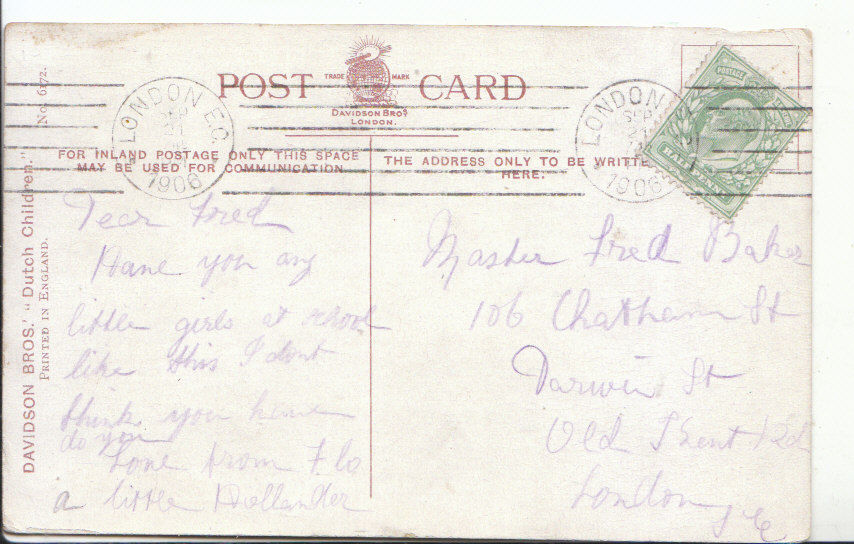 POST CARD
TRADE MARK
DAVIDSON BROS.
LONDON.
LONDON E.C
SEP
1906
LONDON
SEP
1906
POSTAGE
FOR INLAND POSTAGE ONLY THIS SPACE
MAY BE USED FOR COMMUNICATION.
THE ADDRESS ONLY TO BE WRITTE
HERE.
DAVIDSON BROS.' "Dutch Children."
PRINTED IN ENGLAND.
No. 6172.
Dear Fred
Have you any
little girls at school
like this I dont
think you have
do you
Love from Flo
a little Hollander
Master Fred Baker
106 Chatham St
Darwin St
Old Kent Rd
London